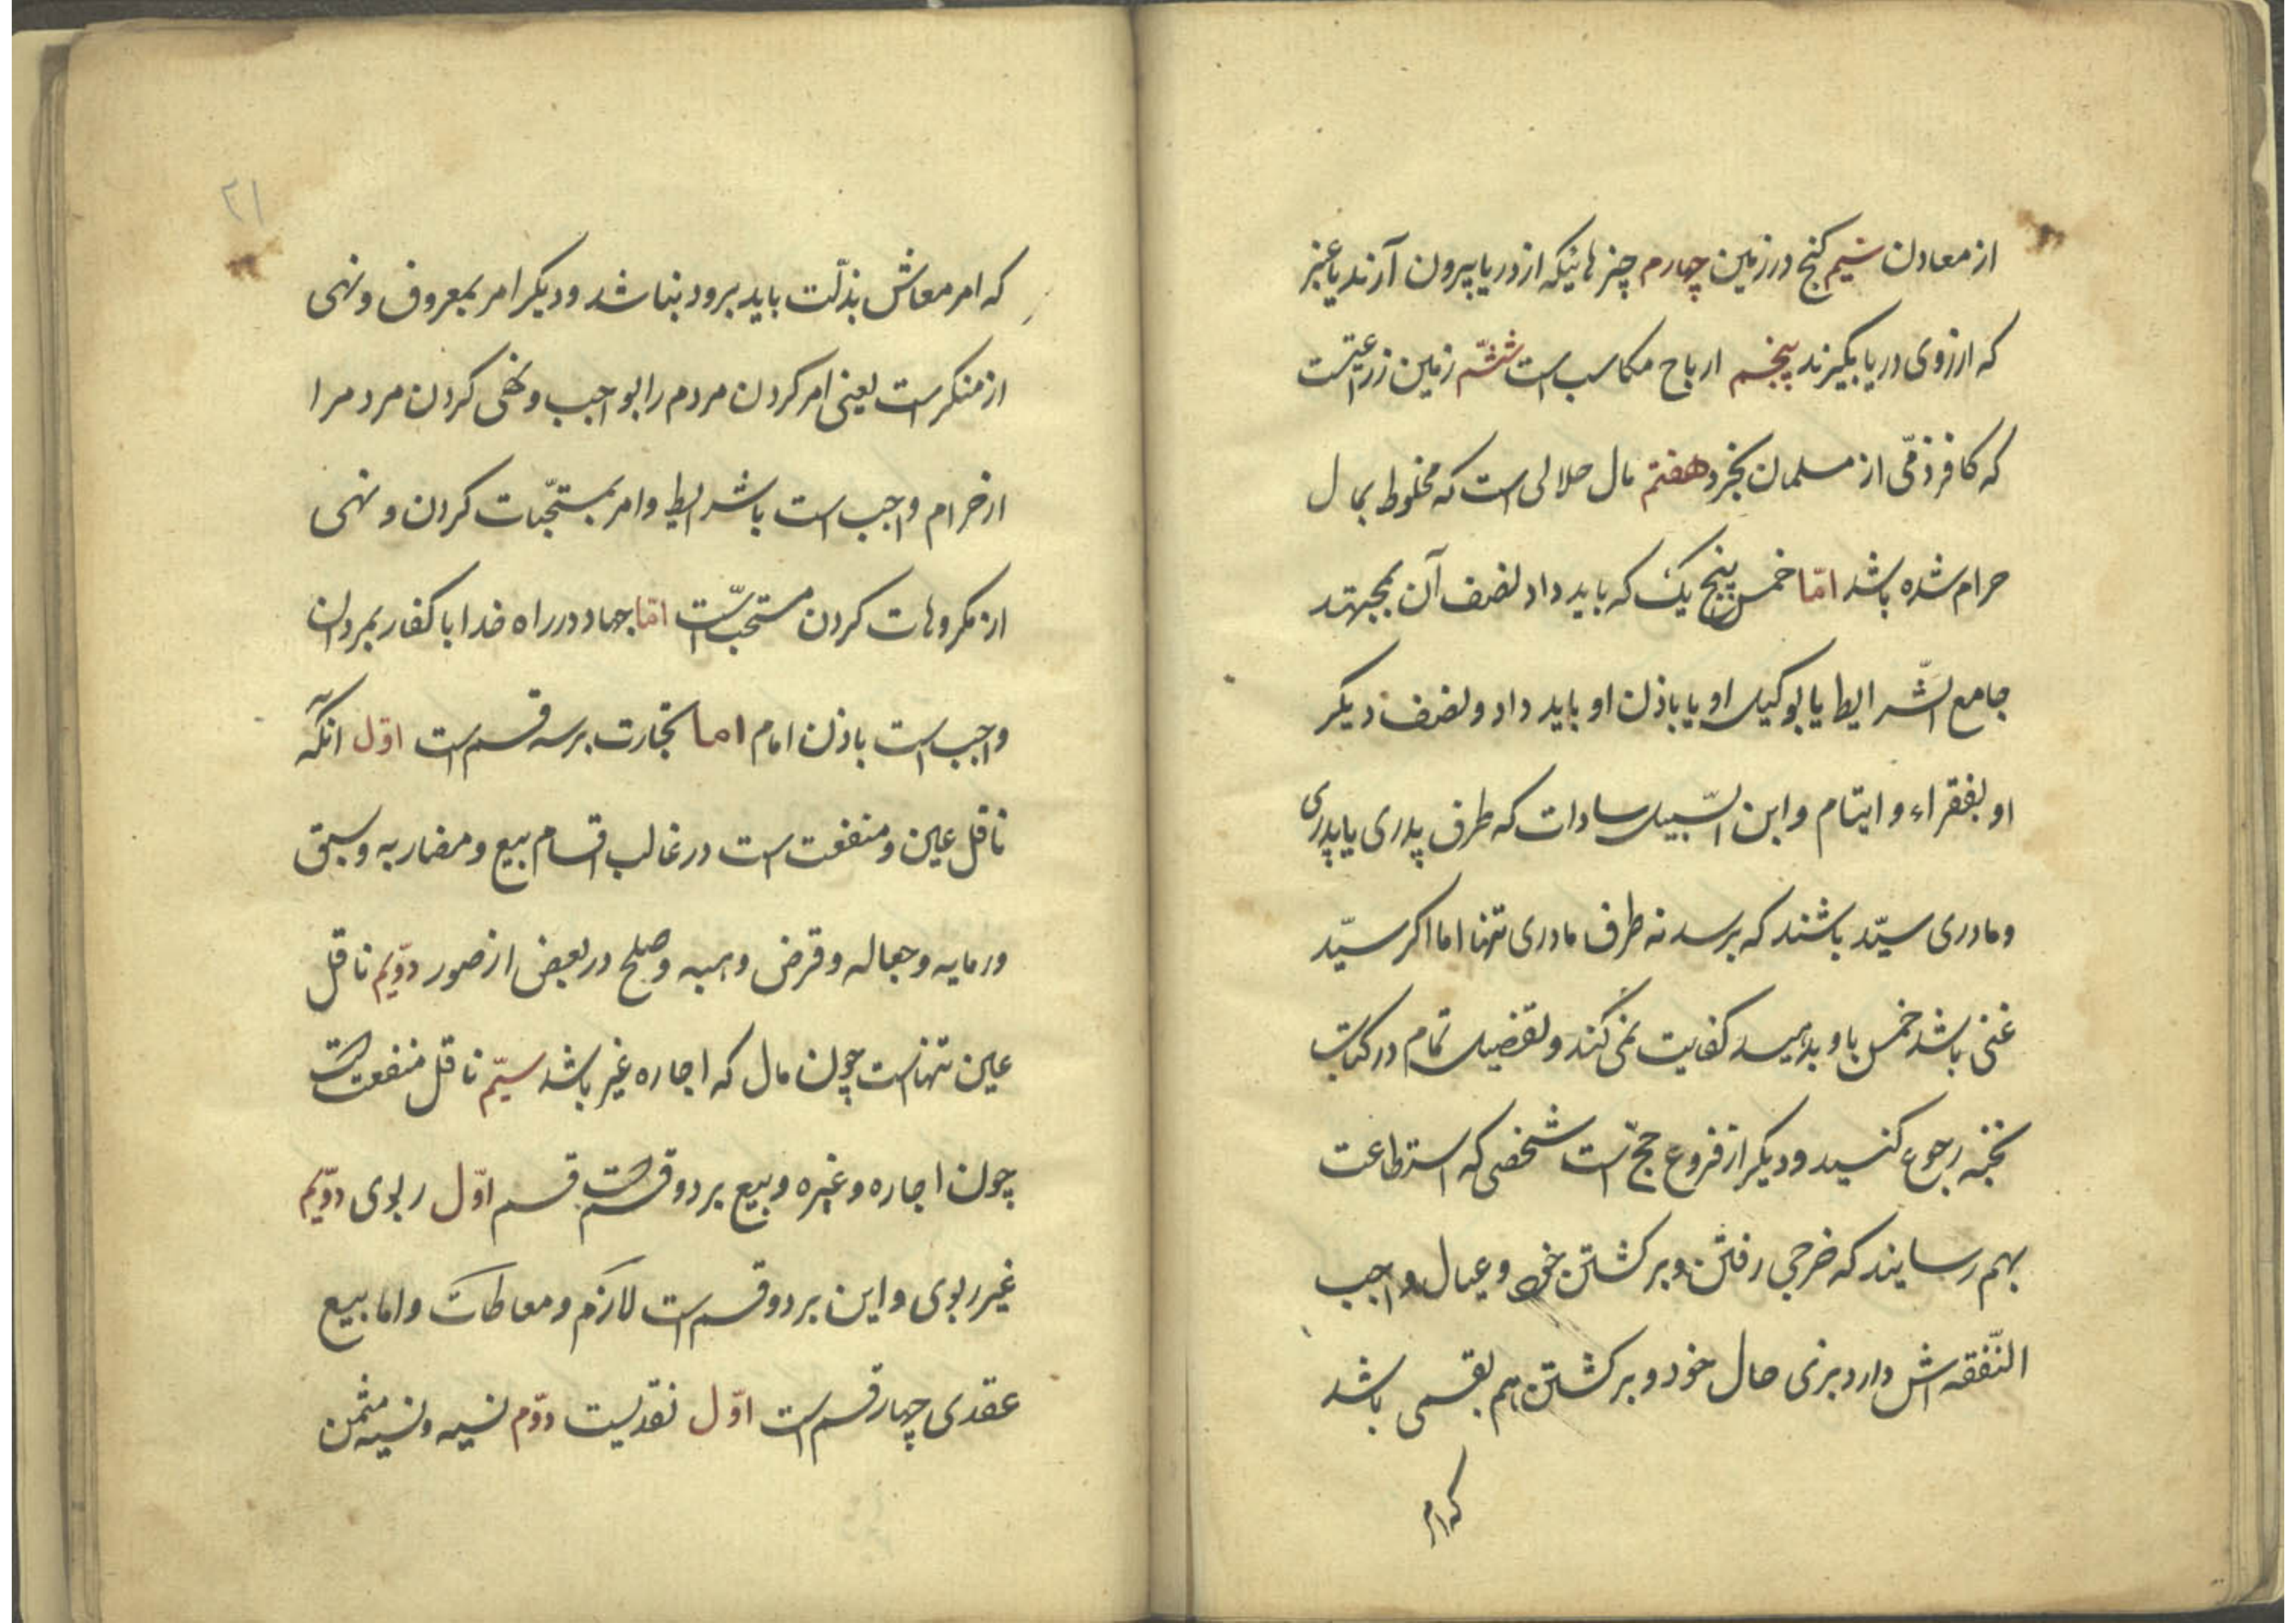 از معادن سیم کنج در زمین چهارم چیز هائیکه از دریا بیرون آرند یا عنبر
که از روی دریا بگیرند پنجم ارباح مکاسب است ششم زمین زراعتیست
که کافر ذمّی از مسلمان بخرد هفتم مال حلالی است که مخلوط بمال
حرام شده باشد امّا خمس پنج یک که باید داد نصف آن بمجتهد
جامع الشّرایط یا بوکیل او یا باذن او باید داد و نصف دیکر
او بفقراء و ایتام و ابن السّبیل سادات که طرف پدری یا پدری
و مادری سیّد باشند که برسد نه طرف مادری تنها اما اکر سیّد
غنی باشد خمس باو بدهید کفایت نمی کند و تفضیل تمام در کتاب
نخبه رجوع کنید و دیکر از فروع حجّ است شخصی که استطاعت
بهم رسایند که خرجی رفتن و بر کشتن خود و عیال واجب
النّفقه اش دارد بزی حال خود و بر کشتن هم بقسمی باشد
که ام
۲۱
که امر معاش بذلّت باید برود نباشد و دیکر امر بمعروف و نهی
از منکر است یعنی امر کردن مردم را بواجب و نهی کردن مردم را
از حرام واجب است با شرایط و امر بمستحبّات کردن و نهی
از مکروهات کردن مستحبّ است امّا جهاد در راه خدا با کفار بمردان
واجب است باذن امام اما تجارت بر سه قسم است اوّل انکه
ناقل عین و منفعت است در غالب اقسام بیع و مضاربه و سبق
و رمایه و جعاله و قرض و هبه و صلح در بعض از صور دوّیم ناقل
عین تنهاست چون مال که اجاره غیر باشد سیّم ناقل منفعت است
چون اجاره و غیره و بیع بر دو قسم است قسم اوّل ربوی دوّیم
غیر ربوی و این بر دو قسم است لازم و معاطات و اما بیع
عقدی چهار قسم است اوّل نقدیست دوّم نسیه و نسیه مثمن